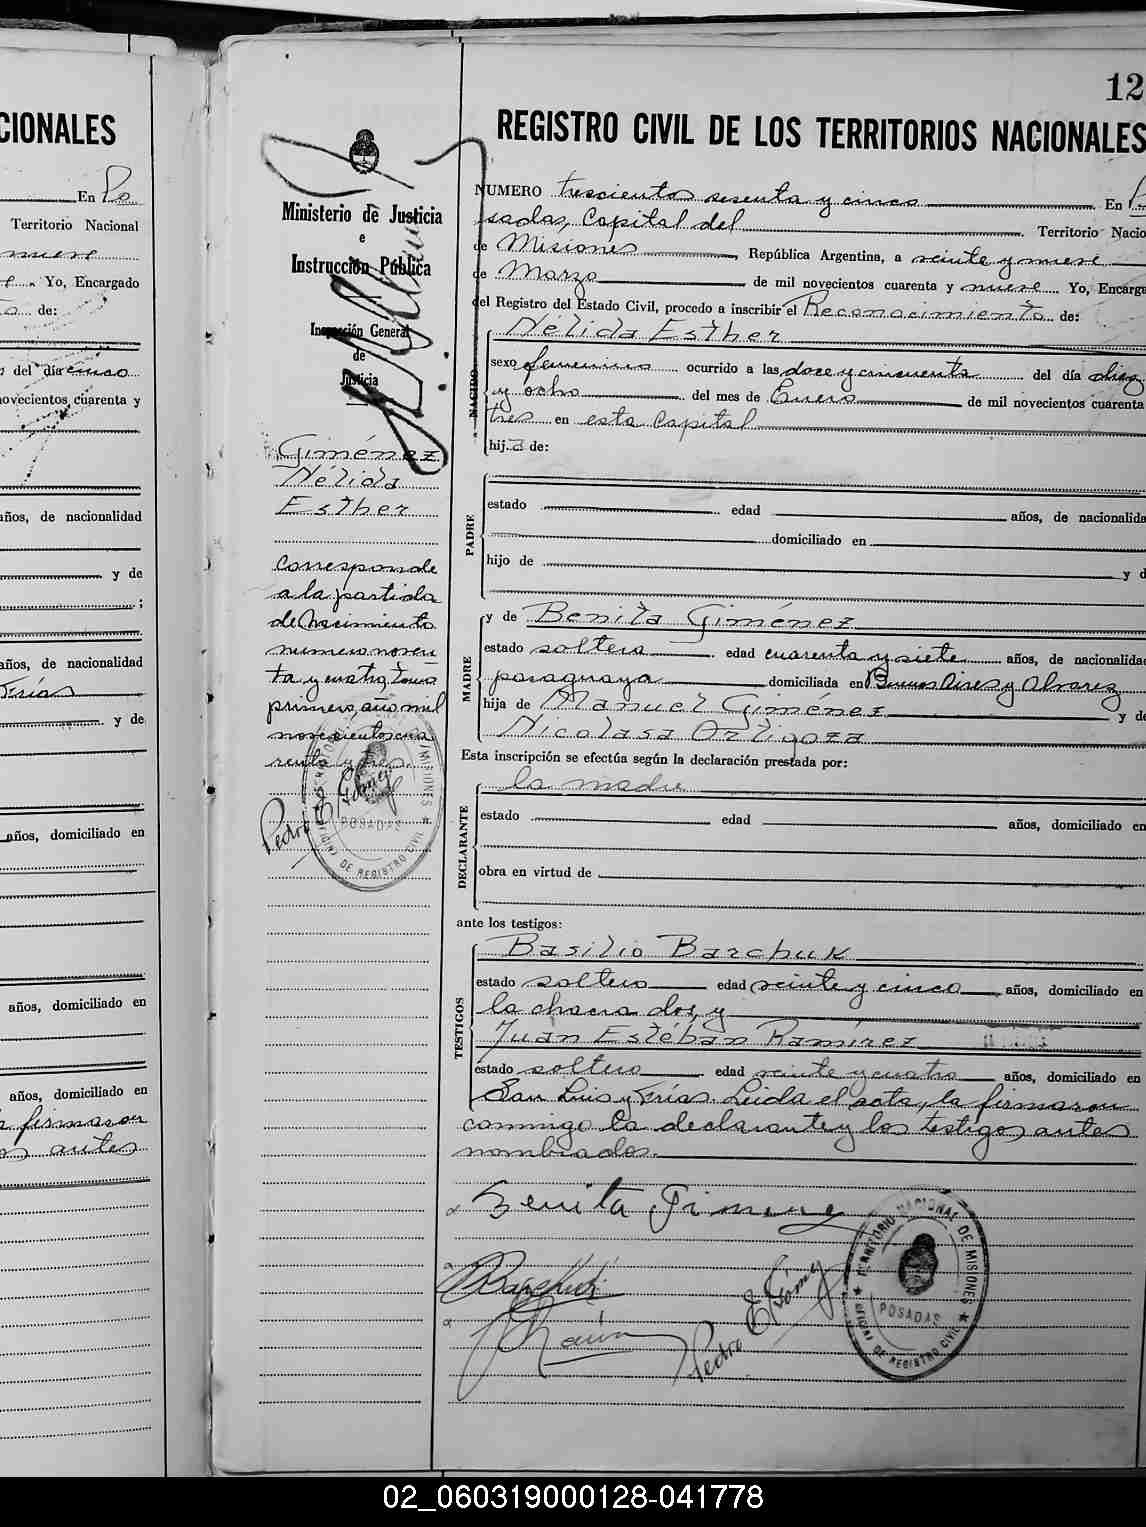 CIONALES
En Po
Territorio Nacional
nueve
Yo, Encargado
de:
del día cinco
novecientos cuarenta y
años, de nacionalidad
y de
años, de nacionalidad
Frías
y de
años, domiciliado en
años, domiciliado en
años, domiciliado en
firmaron
antes
Ministerio de Justicia
e
Instrucción Pública
Inspección General
de
Justicia
Giménez
Nélida
Esther
Corresponde
a la partida
de Nacimiento
número noven
ta y cuatro, tomo
primero, año mil
novecientos cua
renta y tres.
Pedro E Gómez
OFICINA DE REGISTRO CIVIL
POSADAS
MISIONES
12
REGISTRO CIVIL DE LOS TERRITORIOS NACIONALES
NUMERO trescientos sesenta y cinco En P
sadas, Capital del Territorio Nacio
de Misiones, República Argentina, a veinte y nueve
de Marzo de mil novecientos cuarenta y nueve Yo, Encarga
del Registro del Estado Civil, procedo a inscribir el Reconocimiento de:
NACIDO
Nélida Esther
sexo femenino ocurrido a las doce y cincuenta del día diez
y ocho del mes de Enero de mil novecientos cuarenta
tres en esta Capital
hija de:
PADRE
estado edad años, de nacionalida
domiciliado en
hijo de y d
MADRE
y de Benita Giménez
estado soltera edad cuarenta y siete años, de nacionalida
paraguaya domiciliada en Buenos Aires y Alvarez
hija de Manuel Giménez y de
Nicolasa Ortigoza
Esta inscripción se efectúa según la declaración prestada por:
DECLARANTE
la madre
estado edad años, domiciliado en
obra en virtud de
ante los testigos:
TESTIGOS
Basilio Barchuk
estado soltero edad veinte y cinco, años, domiciliado en
la chacra dos, y
Juan Estéban Ramírez
estado soltero edad veinte y cuatro años, domiciliado en
San Luis y Frías. Leida el acta, la firmaron
conmigo la declarante y los testigos antes
nombrados.
Benita Gimenez
Barchuk
Pedro E Gómez
TERRITORIO NACIONAL DE MISIONES
POSADAS
OFICINA DE REGISTRO CIVIL
02_060319000128-041778